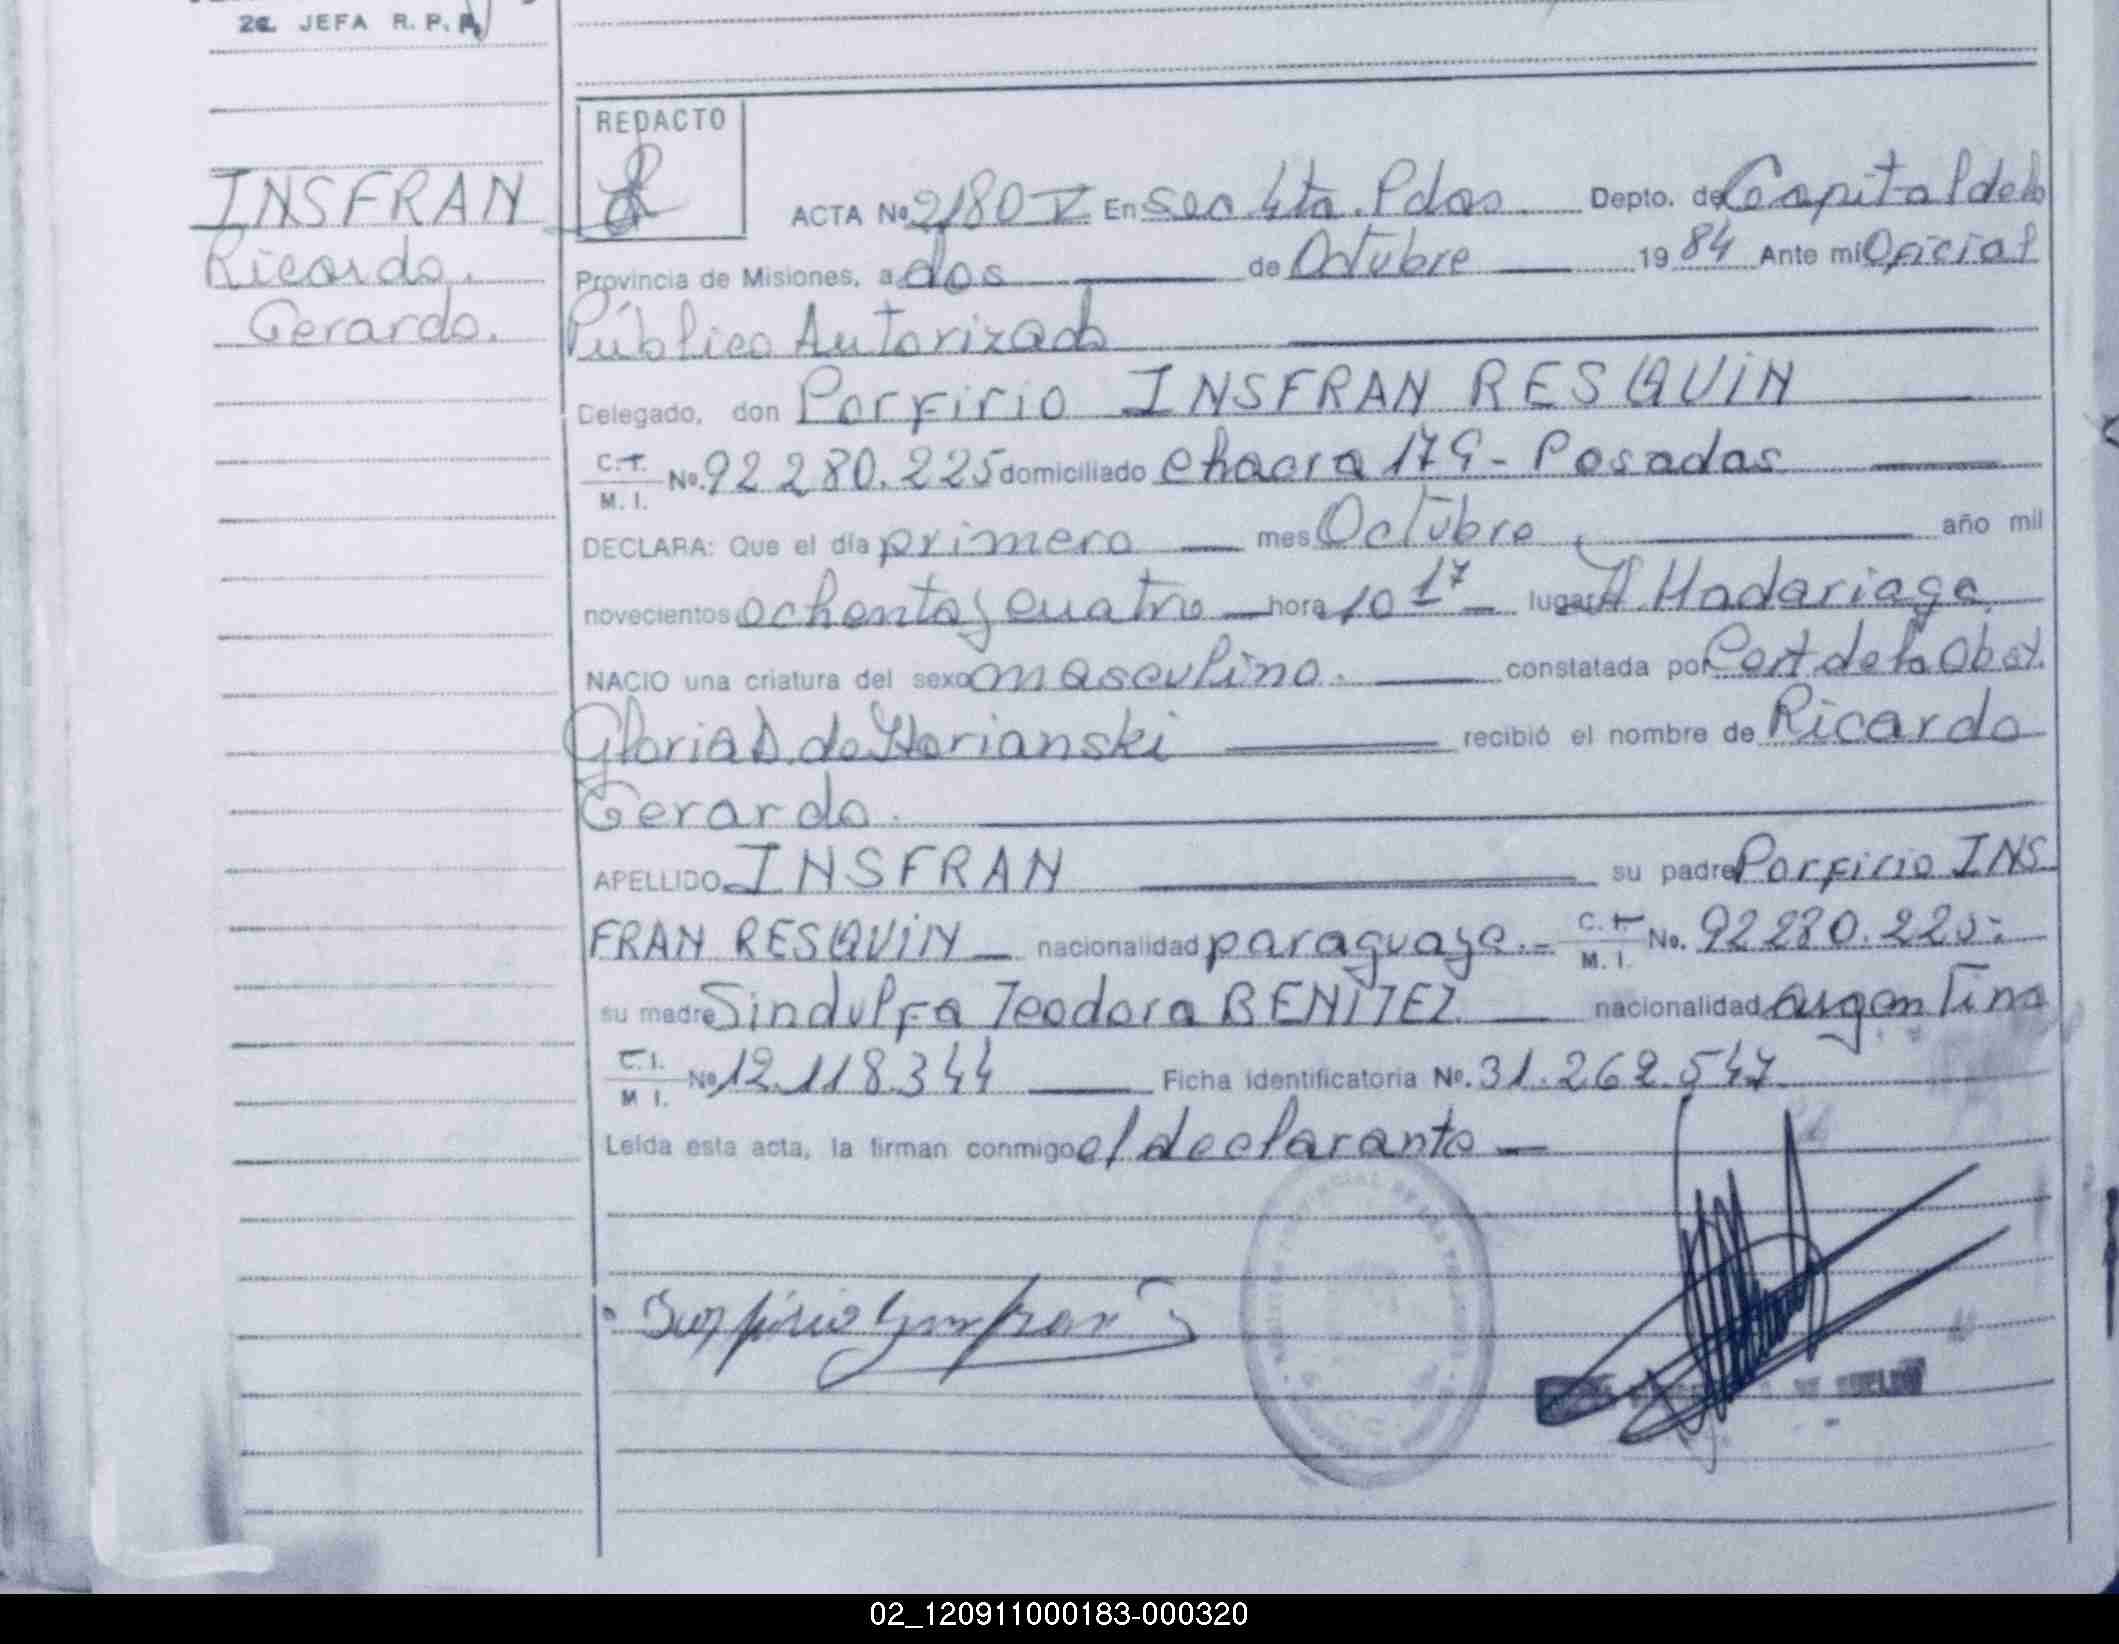 2a. JEFA R. P. P.
REDACTO
INSFRAN
Ricardo
Gerardo.
ACTA No 2180 V En Sec 4ta. Pdas Depto. de Capital de la
Provincia de Misiones, a dos de Octubre 1984 Ante mi Oficial
Público Autorizado
Delegado, don Porfirio INSFRAN RESQUIN
C.I. M. I. No. 92 280.225 domiciliado chacra 179 - Posadas
DECLARA: Que el día primero mes Octubre año mil
novecientos ochenta y cuatro hora 10 17 lugar H. Madariaga
NACIO una criatura del sexo masculino. constatada por Cert de la Obst.
Gloria D. de recibió el nombre de Ricardo
Gerardo.
APELLIDO INSFRAN su padre Porfirio INS
FRAN RESQUIN nacionalidad paraguaya.- C.I. M. I. No. 92 280.225.
su madre Sindulfa Teodora BENITEZ nacionalidad argentina
C.I. M I. No 12.118.344 Ficha identificatoria No. 31.262.547
Leída esta acta, la firman conmigo el declarante
Porfirio Insfran
02_120911000183-000320